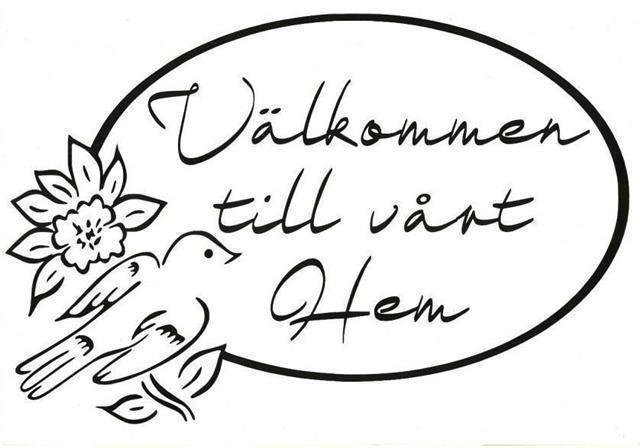 Välkommen
till vårt
Hem